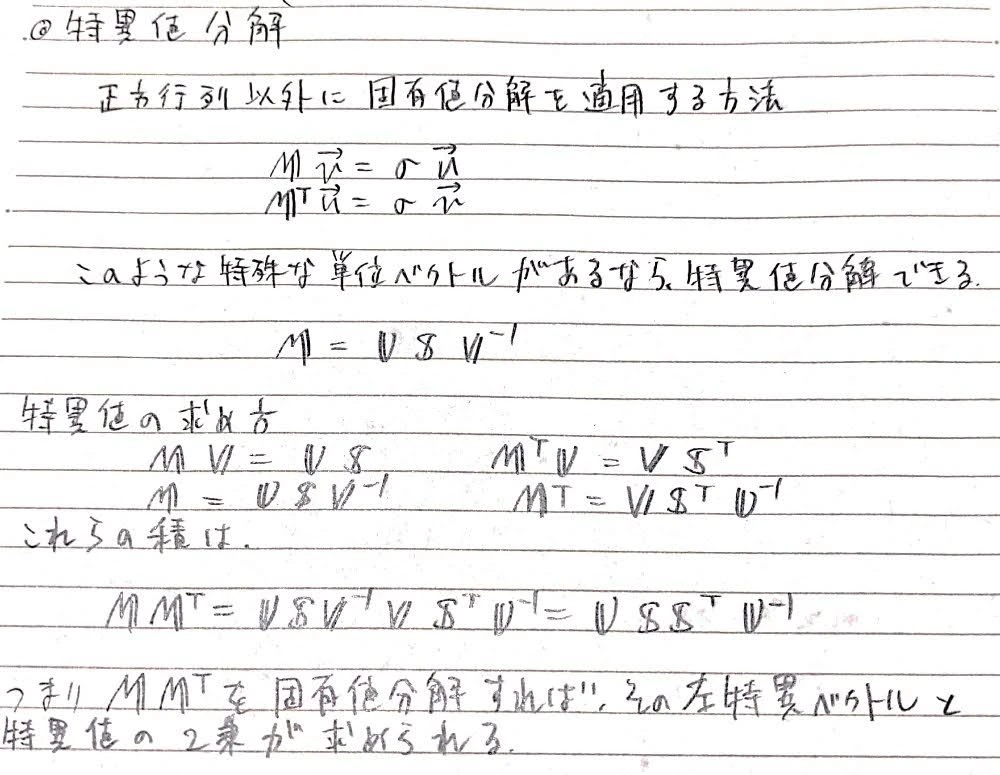 ◎特異値分解
正方行列以外に固有値分解を適用する方法
M v⃗ = σ u⃗
Mᵀ u⃗ = σ v⃗
このような特殊な単位ベクトルがあるなら、特異値分解できる.
M = U S V⁻¹
特異値の求め方
M V = U S    Mᵀ U = V Sᵀ
M = U S V⁻¹    Mᵀ = V Sᵀ U⁻¹
これらの積は.
M Mᵀ = U S V⁻¹ V Sᵀ U⁻¹ = U S Sᵀ U⁻¹
つまり M Mᵀ を固有値分解すれば、その左特異ベクトルと
特異値の2乗が求められる.